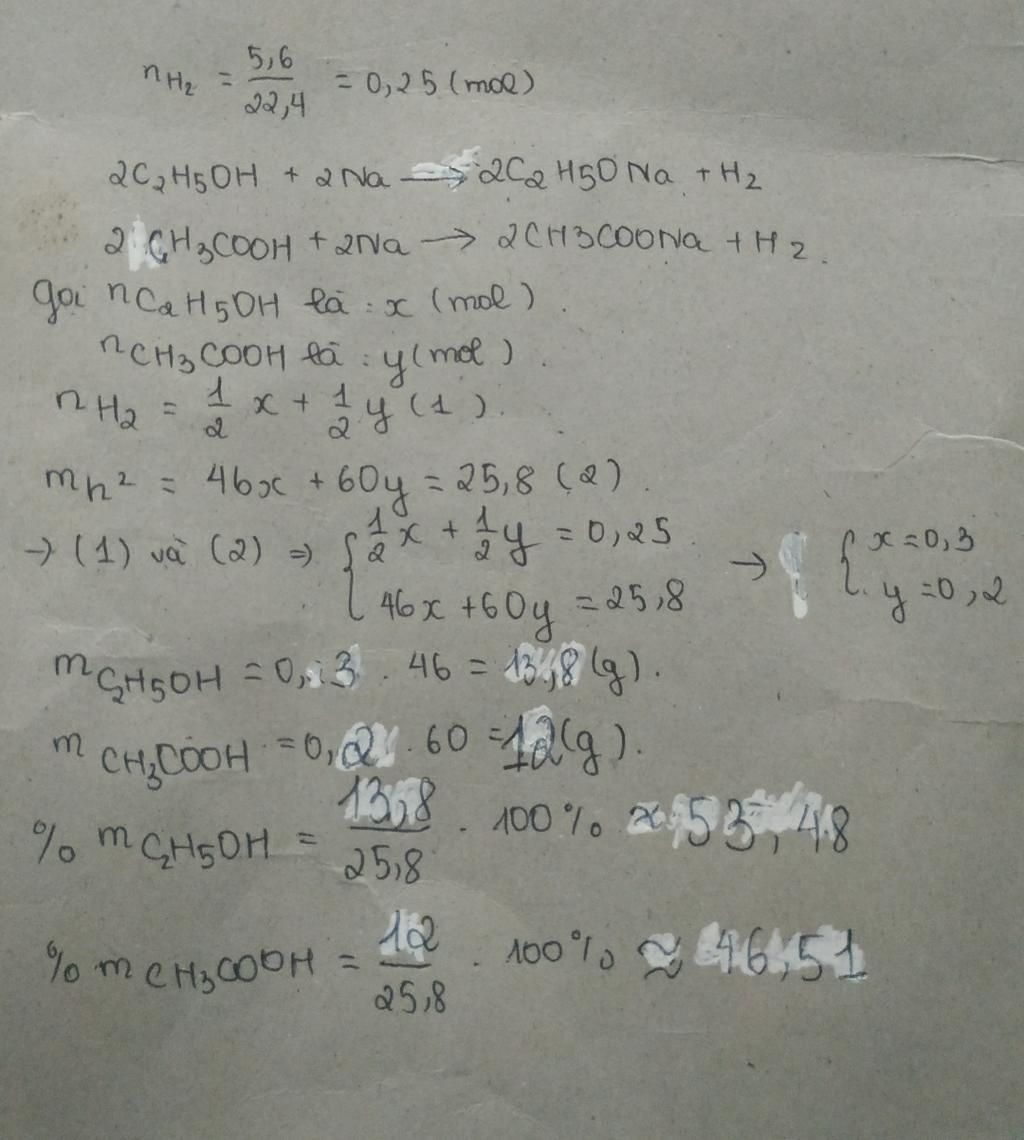 nH₂ = 5,6/22,4 = 0,25 (mol)
2C₂H5OH + 2Na → 2C₂H5ONa + H₂
2CH₃COOH + 2Na → 2CH3COONa + H₂.
Gọi nC₂H5OH là : x (mol).
nCH₃COOH là : y (mol).
nH₂ = 1/2 x + 1/2 y (1).
mh² = 46x + 60y = 25,8 (2).
→ (1) và (2) ⇒ { 1/2 x + 1/2 y = 0,25 → { x = 0,3
46x + 60y = 25,8 y = 0,2
mC₂H5OH = 0,3 . 46 = 13,8 (g).
mCH₃COOH = 0,2 . 60 = 12 (g).
% mC₂H5OH = 13,8/25,8 . 100% ≈ 53,48
% mCH₃COOH = 12/25,8 . 100% ≈ 46,51